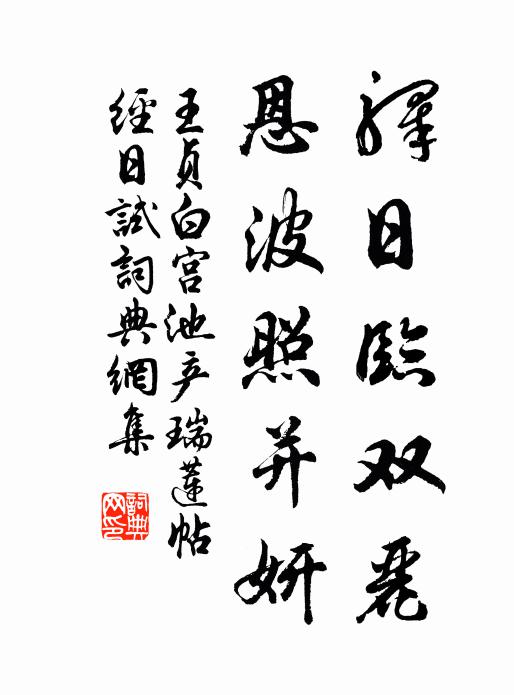 日臨双麗
恩波照并妍
王貞白宫池产瑞蓮帖
經日試詞典網集
詞典
网印